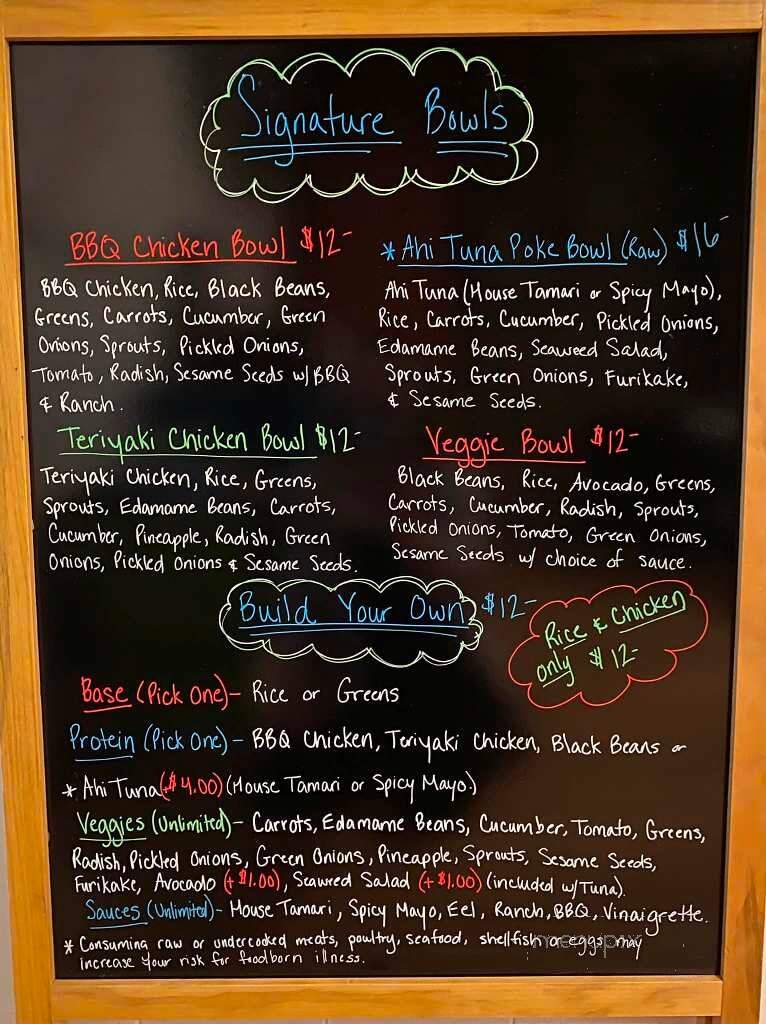 Signature Bowls
BBQ Chicken Bowl $12-
BBQ Chicken, Rice, Black Beans,
Greens, Carrots, Cucumber, Green
Onions, Sprouts, Pickled Onions,
Tomato, Radish, Sesame Seeds w/ BBQ
& Ranch.
* Ahi Tuna Poke Bowl (Raw) $16-
Ahi Tuna (House Tamari or Spicy Mayo),
Rice, Carrots, Cucumber, Pickled Onions,
Edamame Beans, Seaweed Salad,
Sprouts, Green Onions, Furikake,
& Sesame Seeds.
Teriyaki Chicken Bowl $12-
Teriyaki Chicken, Rice, Greens,
Sprouts, Edamame Beans, Carrots,
Cucumber, Pineapple, Radish, Green
Onions, Pickled Onions & Sesame Seeds.
Veggie Bowl $12-
Black Beans, Rice, Avocado, Greens,
Carrots, Cucumber, Radish, Sprouts,
Pickled Onions, Tomato, Green Onions,
Sesame Seeds w/ choice of sauce.
Build Your Own $12-
Rice & Chicken
only $12-
Base (Pick One)- Rice or Greens
Protein (Pick One)- BBQ Chicken, Teriyaki Chicken, Black Beans or
* Ahi Tuna (+$4.00) (House Tamari or Spicy Mayo.)
Veggies (Unlimited)- Carrots, Edamame Beans, Cucumber, Tomato, Greens,
Radish, Pickled Onions, Green Onions, Pineapple, Sprouts, Sesame Seeds,
Furikake, Avocado (+$1.00), Seaweed Salad (+$1.00) (included w/Tuna).
Sauces (Unlimited)- House Tamari, Spicy Mayo, Eel, Ranch, BBQ, Vinaigrette.
* Consuming raw or undercooked meats, poultry, seafood, shellfish or eggs may
increase your risk for foodborn illness.
menupix